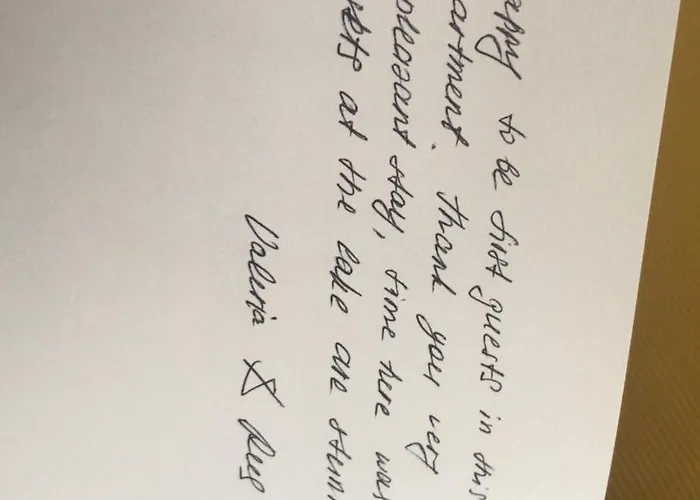 appy to be first guests in this
artment. Thank you very
pleasant stay, time here was
sets at the lake are stunn
Valeria &